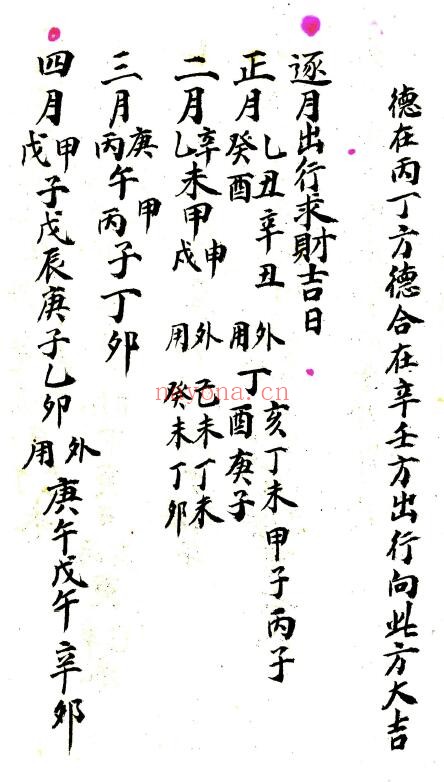 德在丙丁方德合在辛壬方出行向此方大吉
逐月出行求財吉日
正月乙丑辛丑癸酉外用丁亥丁未甲子丙子酉庚子
二月辛乙未甲申戌外用己未丁未癸未丁卯
三月庚丙午甲丙子丁卯
四月甲戊子戊辰庚子乙卯外用庚午戊午辛卯
nayona.cn